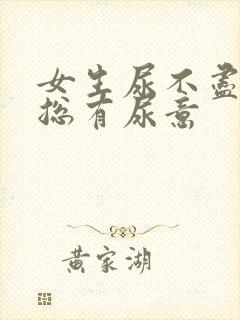 女生尿不盡
總有尿意
黄家湖